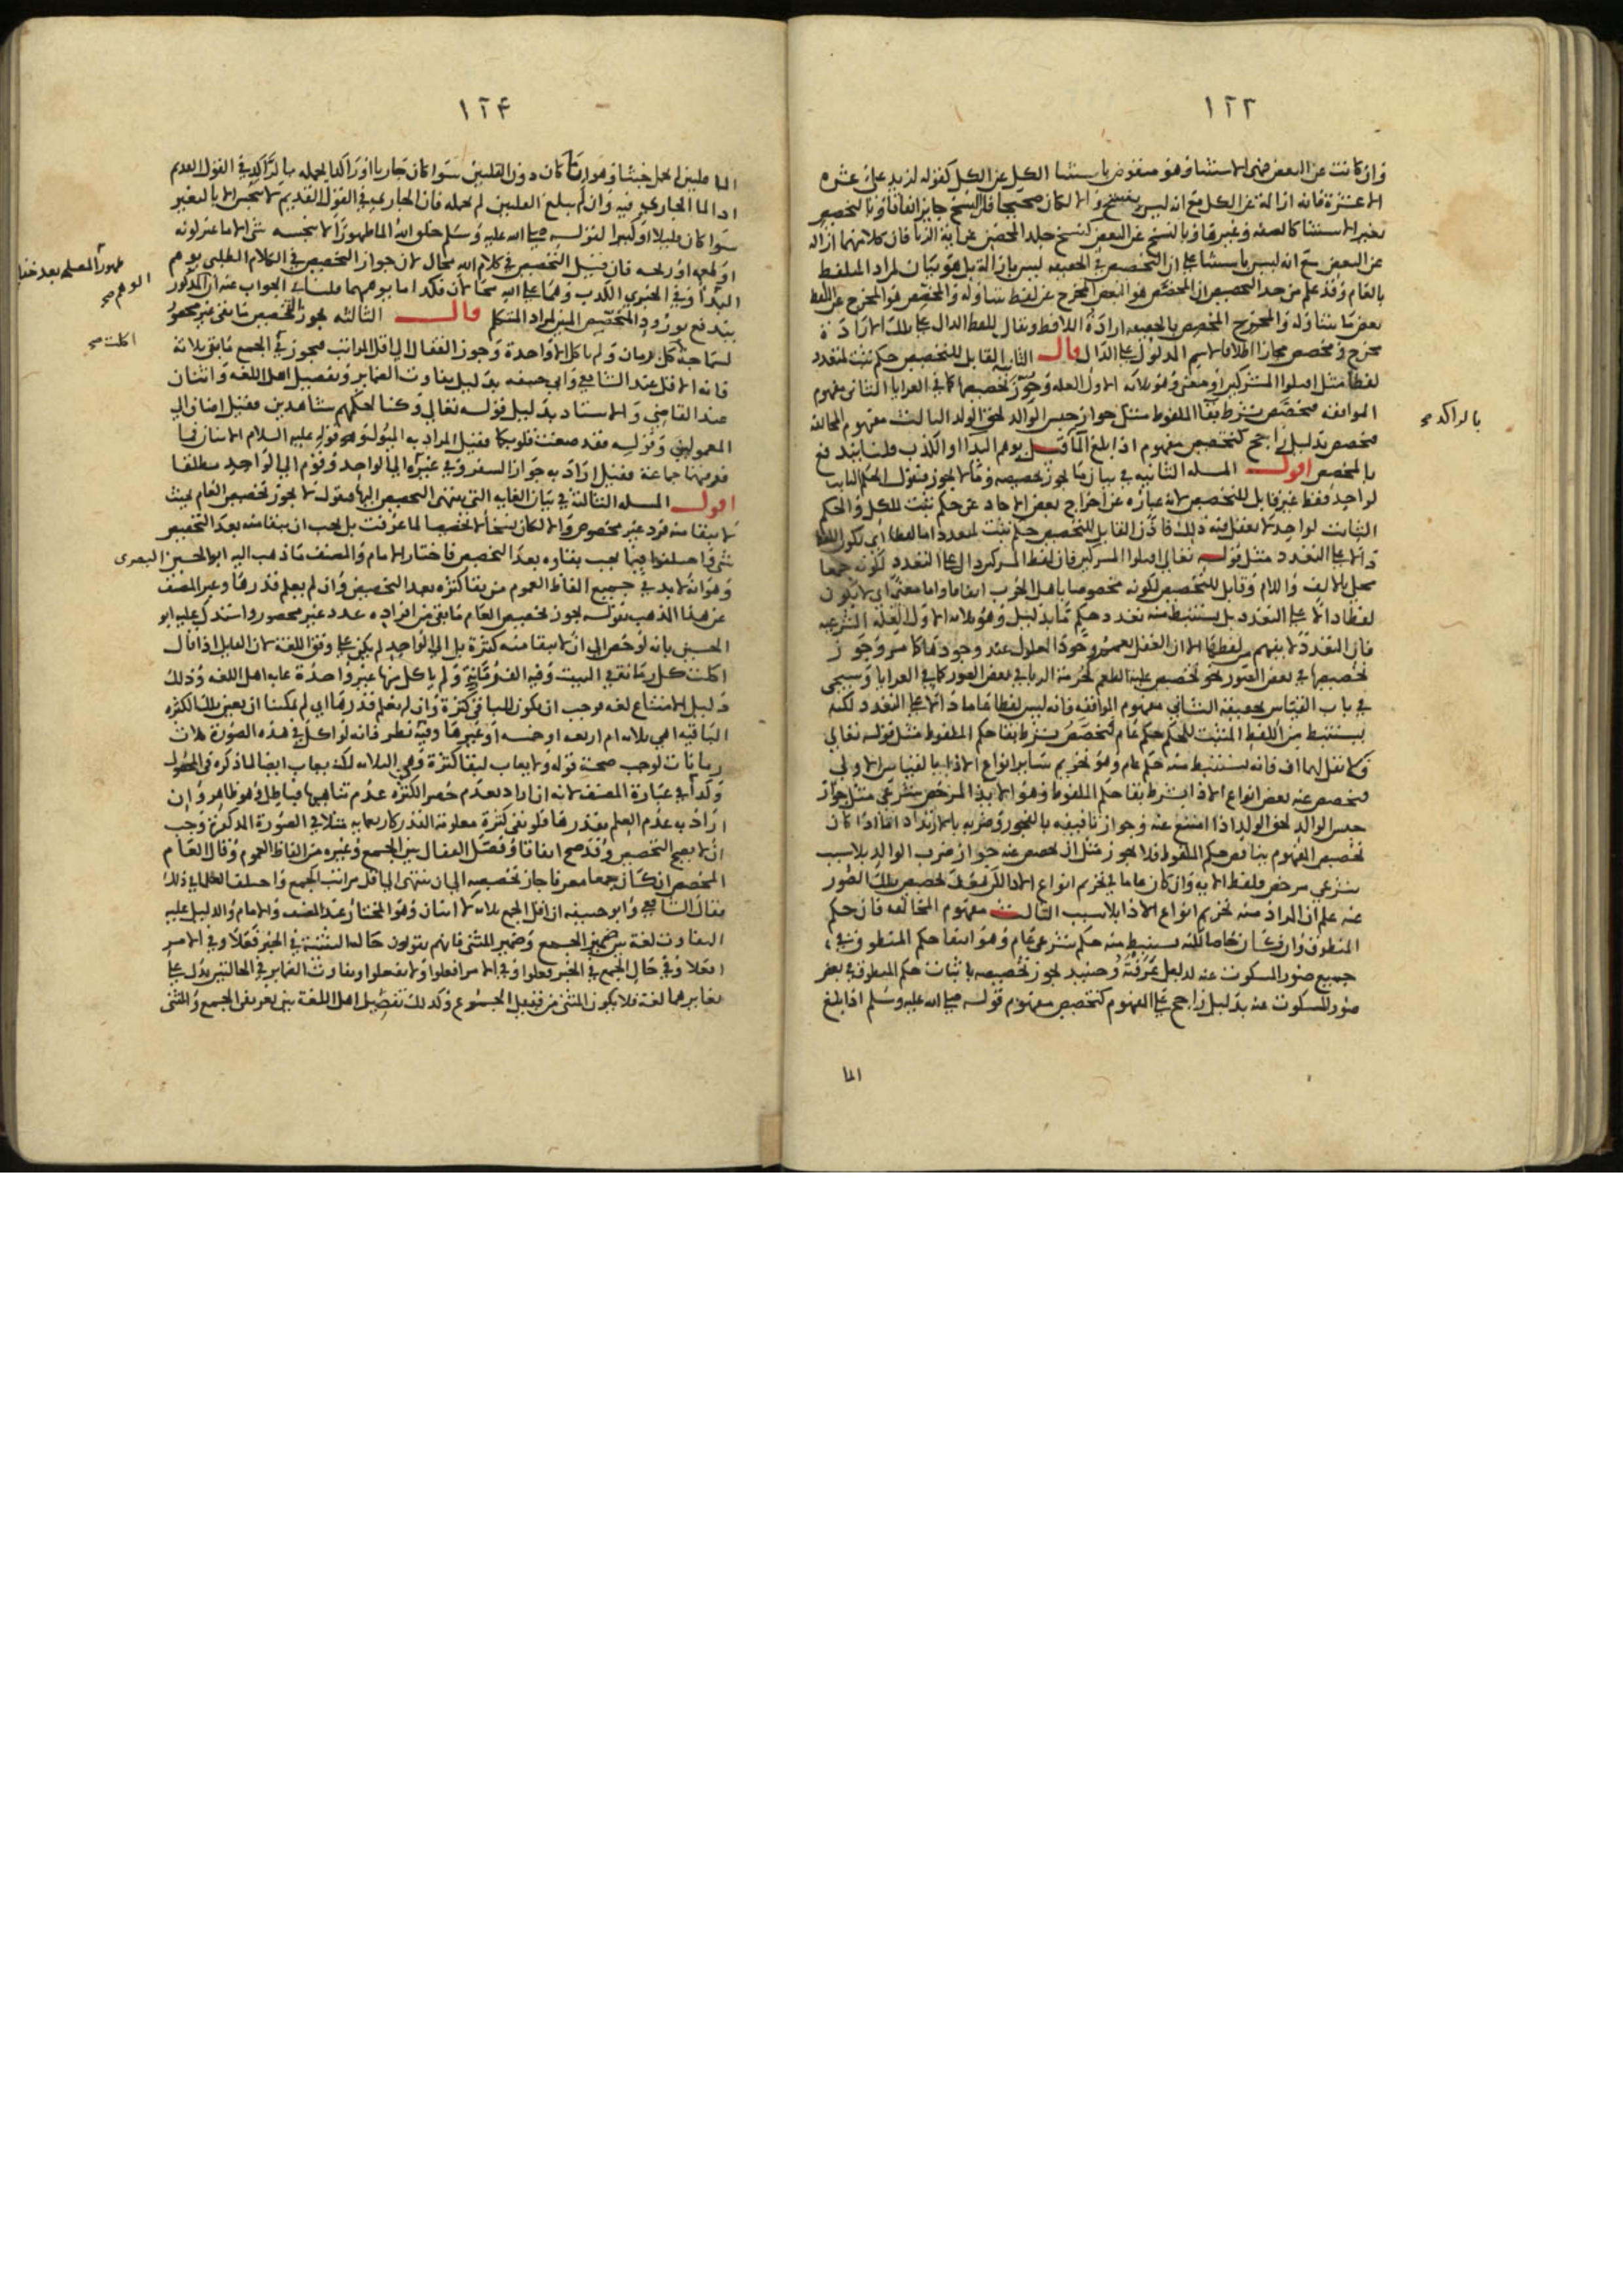 ١٢٣
وان كانت عن البعض فهي الاستثنا وهو منقوض باستثنا الكل عن الكل كقوله لزيد علي عشرة
الا عشرة فانه ازالة عن الكل مع انه ليس بنسخ والا لكان صحيحا فان النسخ جايز اتفاقا وبالتخصيص
بغير الاستثنا كالصفة وغيرها وبالنسخ عن البعض كنسخ جلد المحصن عن اية الزنا فان كلا منهما ازالة
عن البعض مع انه ليس باستثنا علي ان التخصيص في الحقيقه ليس بازالة بل هو بيان لمراد المتلفظ
بالعام وقد علم من حد التخصيص ان المخصَّص هو البعض المخرج عن لفظ يتناوله والمخصِّص هو المخرج عن اللفظ
بعض ما يتناوله والمخرج المخصص بالحقيقه ارادة اللافظ ويقال للفظ الدال علي تلك الارادة
مخرج ومخصص مجازا اطلاقا لاسم المدلول علي الدال قال الثاني القابل للتخصيص حكم ثبت لمتعدد
لفظا مثل اقتلوا المشركين او معني وهو ثلاثه الاول العله وجوز تخصيصها كما في العرايا الثاني مفهوم
الموافقه فيخصص بشرط بقا الملفوظ مثل جواز حبس الوالد لحق الولد الثالث مفهوم المخالفة
فيخصص بدليل راجح كتخصيص مفهوم اذا بلغ الما قيل يوهم البدا او الكذب قلنا يندفع
بالمخصص اقول المسله الثانيه في بيان ما يجوز تخصيصه وما لا يجوز فنقول الحكم الثابت
لواحد فقط غير قابل للتخصيص لانه عبارة عن اخراج بعض الاحاد عن حكم ثبت للكل والحكم
الثابت لواحد لا يعقل فيه ذلك فاذن القابل للتخصيص حكم ثبت لمتعدد اما لفظا اي يكون اللفظ
دالا علي التعدد مثل قوله تعالي اقتلوا المشركين فان لفظ المشركين دال علي التعدد لكونه جمعا
محلي بالالف واللام وقابل للتخصيص لكونه مخصوصا باهل الحرب اتفاقا واما معني اي لا يكون
لفظا دالا علي التعدد بل يستنبط منه تعدد حكم ما بدليل وهو ثلاثه الاول العلة الشرعيه
تخصيصها في بعض الصور نحو تخصيص علية الطعم لحرمة الربا في بعض الصور كما في العرايا وسيجي
في باب القياس تحقيقه الثاني مفهوم الموافقه فانه ليس لفظا عاما دالا علي التعدد لكنه
يستنبط من اللفظ المثبت للحكم حكم عام فتخصص بشرط بقا حكم الملفوظ مثل قوله تعالي
ولا تقل لهما اف فانه يستنبط منه حكم عام وهو تحريم ساير انواع الاذا بالقياس الاولي
فيخصص عنه بعض انواع الاذا بشرط بقا حكم الملفوظ وهو الايذا المرخص شرعي مثل جواز
حبس الوالد لحق الولد اذا امتنع عنه وجواز تاديبه بالفجور وضربه بالارتداد اما اذا كان
تخصيص المفهوم ينافي حكم الملفوظ فلا يجوز مثل ان يخصص عنه جواز ضرب الوالد بلا سبب
عنه علم ان المراد منه تحريم انواع الاذا بلا سبب الثالث مفهوم المخالفه فان حكم
المنطوق وان كان خاصا لكنه يستنبط منه حكم شرعي عام وهو انتفا حكم المنطوق في
جميع صور المسكوت عنه لدليل عرفته وحينيذ يجوز تخصيصه باثبات حكم المنطوق في بعض
صور المسكوت عنه بدليل راجح علي المفهوم كتخصيص مفهوم قوله صلي الله عليه وسلم اذا بلغ
الما
بالراكد صح
١٢٤
الما قلتين لم يحمل خبثا وهو ان ما كان دون القلتين سوا كان جاريا او راكدا يحمله بالراكد في القول القديم
اذ الما الجاري فيه وان لم يبلغ القلتين لم يحمله فان الجاري في القول القديم لا ينجس الا بالتغير
سوا كان قليلا او كثيرا لقوله صلي الله عليه وسلم خلق الله الما طهورا لا ينجسه شي الا ما غير لونه
او طعمه او ريحه فان قيل التخصيص في كلام الله محال لان جواز التخصيص في الكلام الطلبي يوهم
البدا وفي الخبري الكذب وهما علي الله محالان فكذا ما يوهمهما قلنا الجواب عنه ان المذكور
يندفع بورود المخصص المبين لمراد المتكلم قال الثالثه يجوز التخصيص ما بقي غير محصور
لسماجة كل رمان ولم ياكل الا واحدة وجوز القفال الي اقل المراتب فيجوز في الجمع ما بقي ثلاثة
فانه الاقل عند الشافعي وابي حنيفه بدليل تفاوت الضماير وتفصيل اهل اللغه واثنان
عند القاضي والاستاد بدليل قوله تعالي وكنا لحكمهم شاهدين فقيل اضاف الي
المعمولين وقوله فقد صغت قلوبكما فقيل المراد به الميول وقوله عليه السلام الاثنان فما
فوقهما جماعة فقيل اراد به جواز السفر وفي غيره الي الواحد وقوم الي الواحد مطلقا
اقول المسله الثالثة في بيان الغايه التي ينتهي التخصيص اليها فنقول لا يجوز تخصيص العام بحيث
لا يبقا منه فرد غير مخصوص والا لكان نسخا لا تخصيصا لما عرفت بل يجب ان يبقا منه بعد التخصيص
شي واختلفوا فيما يجب بقاوه بعد التخصيص فاختار الامام والمصنف ما ذهب اليه ابو الحسين البصري
وهو انه لا بد في جميع الفاظ العموم من بقا كثرة بعد التخصيص وان لم يعلم قدرها وعبر المصنف
عن هذا المذهب بقوله يجوز تخصيص العام ما بقي من افراده عدد غير محصور واستدل عليه ابو
الحسين بانه لو خص الي ان لا يبقا منه كثرة بل الي الواحد لم يكن علي وفق اللغة لان القايل اذا قال
اكلت كل رمانة في البيت وفيه الف رمانة ولم ياكل منها غير واحدة عابه اهل اللغه وذلك
دليل الامتناع لغه فوجب ان يكون للباقي كثرة وان لم نعلم قدرها اي لم يمكننا ان نعين تلك الكثرة
الباقيه اهي ثلاثه ام اربعه او خمسه او غيرها وفيه نظر فانه لو اكل في هذه الصورة ثلاث
رمانات لوجب صحة قوله ولا يعاب لبقا كثرة وهي الثلاثه لكنه يعاب ايضا لما ذكره في المحصول
وكذا في عبارة المصنف لانه ان اراد بعدم حصر الكثرة عدم تناهيها فباطل وهو ظاهر وان
اراد به عدم العلم بقدرها فلو بقي كثرة معلومة القدر كاربعمايه مثلا في الصورة المذكورة وجب
ان لا يصح التخصيص وقد صح اتفاقا وفصل القفال بين الجمع وغيره من الفاظ العموم وقال العام
المخصص ان كان جمعا معرفا جاز تخصيصه الي ان ينتهي الي اقل مراتب الجمع واختلف العلما في ذلك
فقال الشافعي وابو حنيفه ان اقل الجمع ثلاثه لا اثنان وهو المختار عند المصنف والامام والدليل عليه
التفاوت لغة بين ضمير الجمع وضمير المثني فانهم يقولون حالة التثنية في الخبر فعلا وفي الامر
افعلا وفي حال الجمع في الخبر فعلوا وفي الامر افعلوا ولا تفعلوا وتفاوت الضماير في الحالتين يدل علي
تغايرهما لغة فلا يكون المثني من قبيل الجموع وكذلك تفصيل اهل اللغة بين تعريف الجمع والمثني
اكلت صح